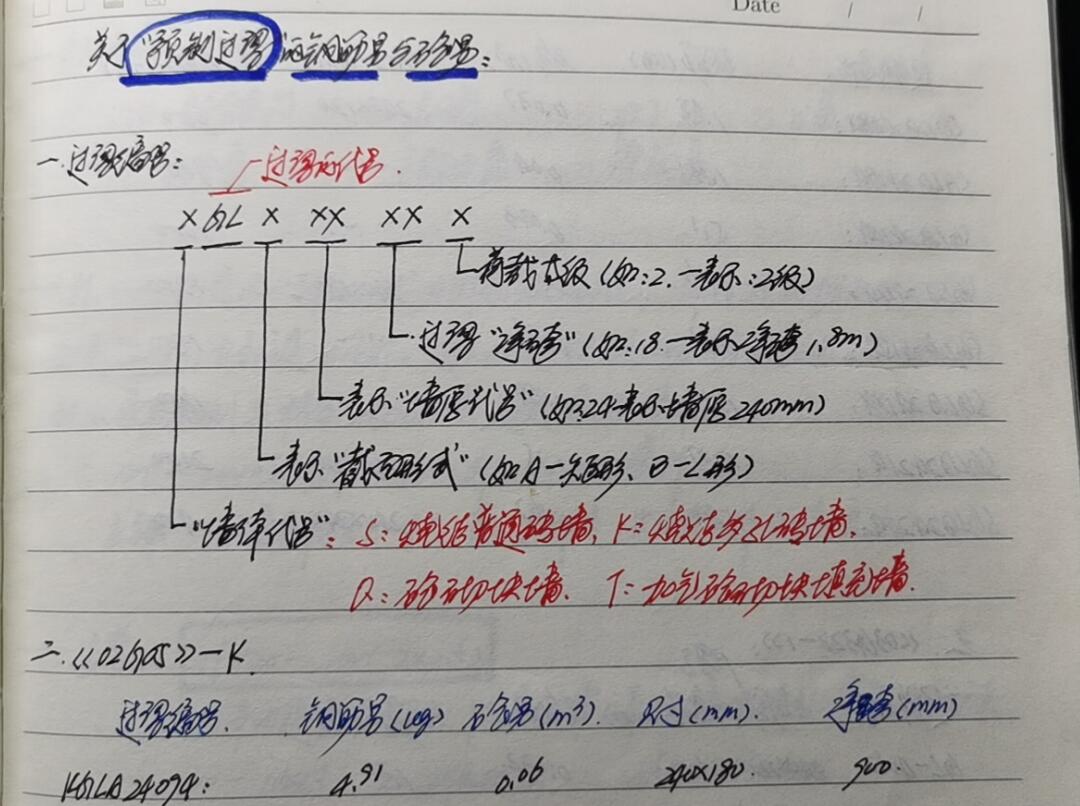 Date / /
关于"预制过梁"的钢筋量与砼量:
一.过梁编号:
过梁的代号.
× GL × ×× ×× ×
荷载等级 (如:2.一表示:2级)
过梁"净跨" (如:18.一表示净跨1.8m)
表示"墙厚代号" (如:24-表示墙厚240mm)
表示"截面形式" (如A一矩形、B-L形)
"墙体代号": S=烧结普通砖墙、K=烧结多孔砖墙、
Q=砼砌块墙、 T=加气砼砌块填充墙.
二.《02G05》-K
过梁编号. 钢筋量(kg) 砼量(m³). 尺寸(mm). 净跨(mm)
KGLA24094: 4.91 0.06 240×180 900.